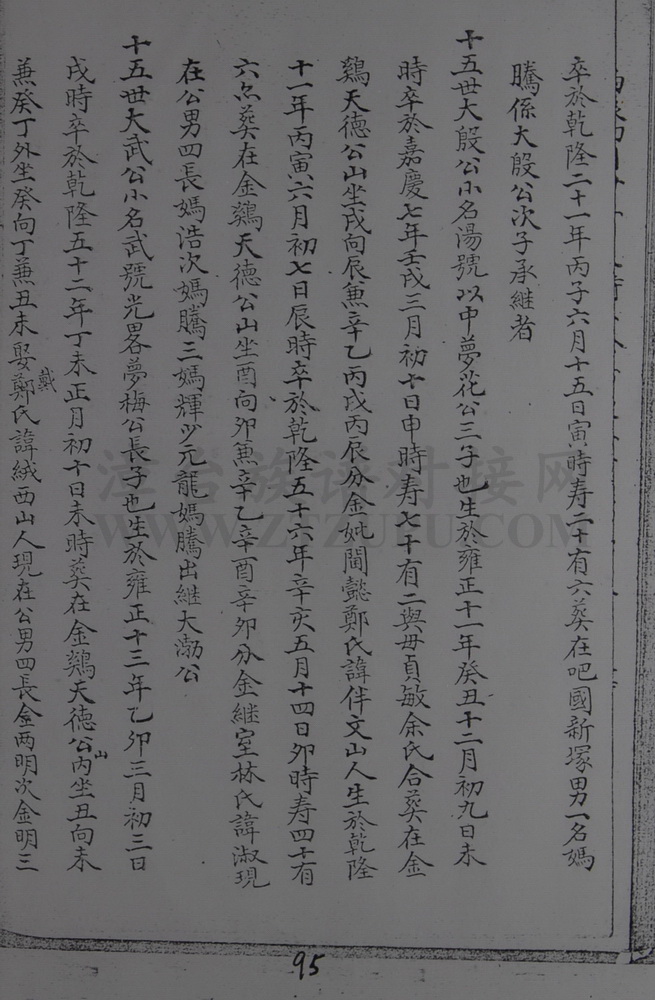 卒於乾隆二十一年丙子六月十五日寅時寿二十有六葬在吧國新塚男一名媽
騰係大殷公次子承継者
十五世大殷公小名湯號以中夢花公三子也生於雍正十一年癸丑十二月初九日未
時卒於嘉慶七年壬戌三月初十日申時寿七十有二與母貞敏余氏合葬在金
鷄天德公山坐戌向辰兼辛乙丙戌丙辰分金妣閫懿鄭氏諱伴文山人生於乾隆
十一年丙寅六月初七日辰時卒於乾隆五十六年辛亥五月十四日卯時寿四十有
六葬在金鷄天德公山坐酉向卯兼辛乙辛酉辛卯分金継室林氏諱淑現
在公男四長媽浩次媽騰三媽輝少元龍媽騰出継大渤公
十五世大武公小名武號光畧夢梅公長子也生於雍正十三年乙卯三月初三日
戌時卒於乾隆五十二年丁未正月初十日未時葬在金鷄天德公山内坐丑向未
兼癸丁外坐癸向丁兼丑未娶鄭氏諱絨西山人現在公男四長金两明次金明三
戴
漳台族谱对接网
WWW.ZTZUPU.COM
95